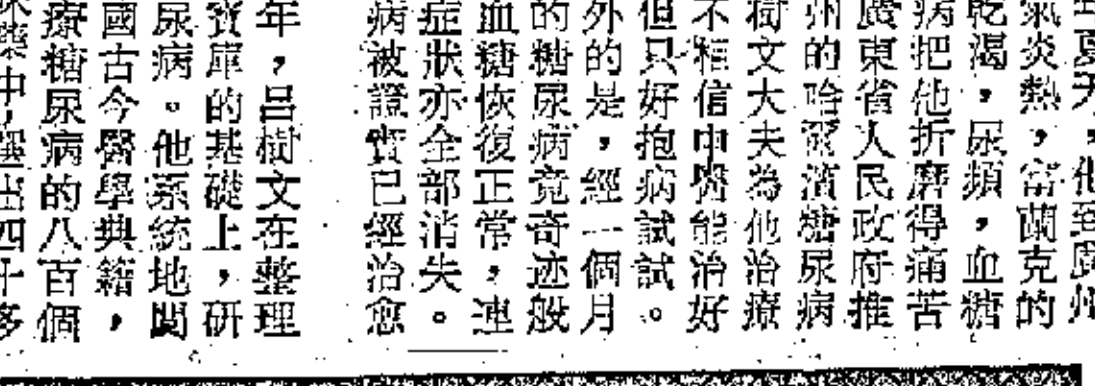 夏天，他到廣州
氣炎熱，富蘭克的
乾渴，尿頻，血糖
病把他折磨得痛苦
廣東省人民政府推
州的哈爾濱糖尿病
樹文大夫為他治療
不相信中醫能治好
但只好抱病試試。
外的是，經一個月
的糖尿病竟奇迹般
血糖恢復正常，連
症狀亦全部消失。
病被證實已經治愈
年，呂樹文在整理
寶庫的基礎上，研
尿病。他系統地閱
國古今醫學典籍，
療糖尿病的八百個
藥中，選出四十多